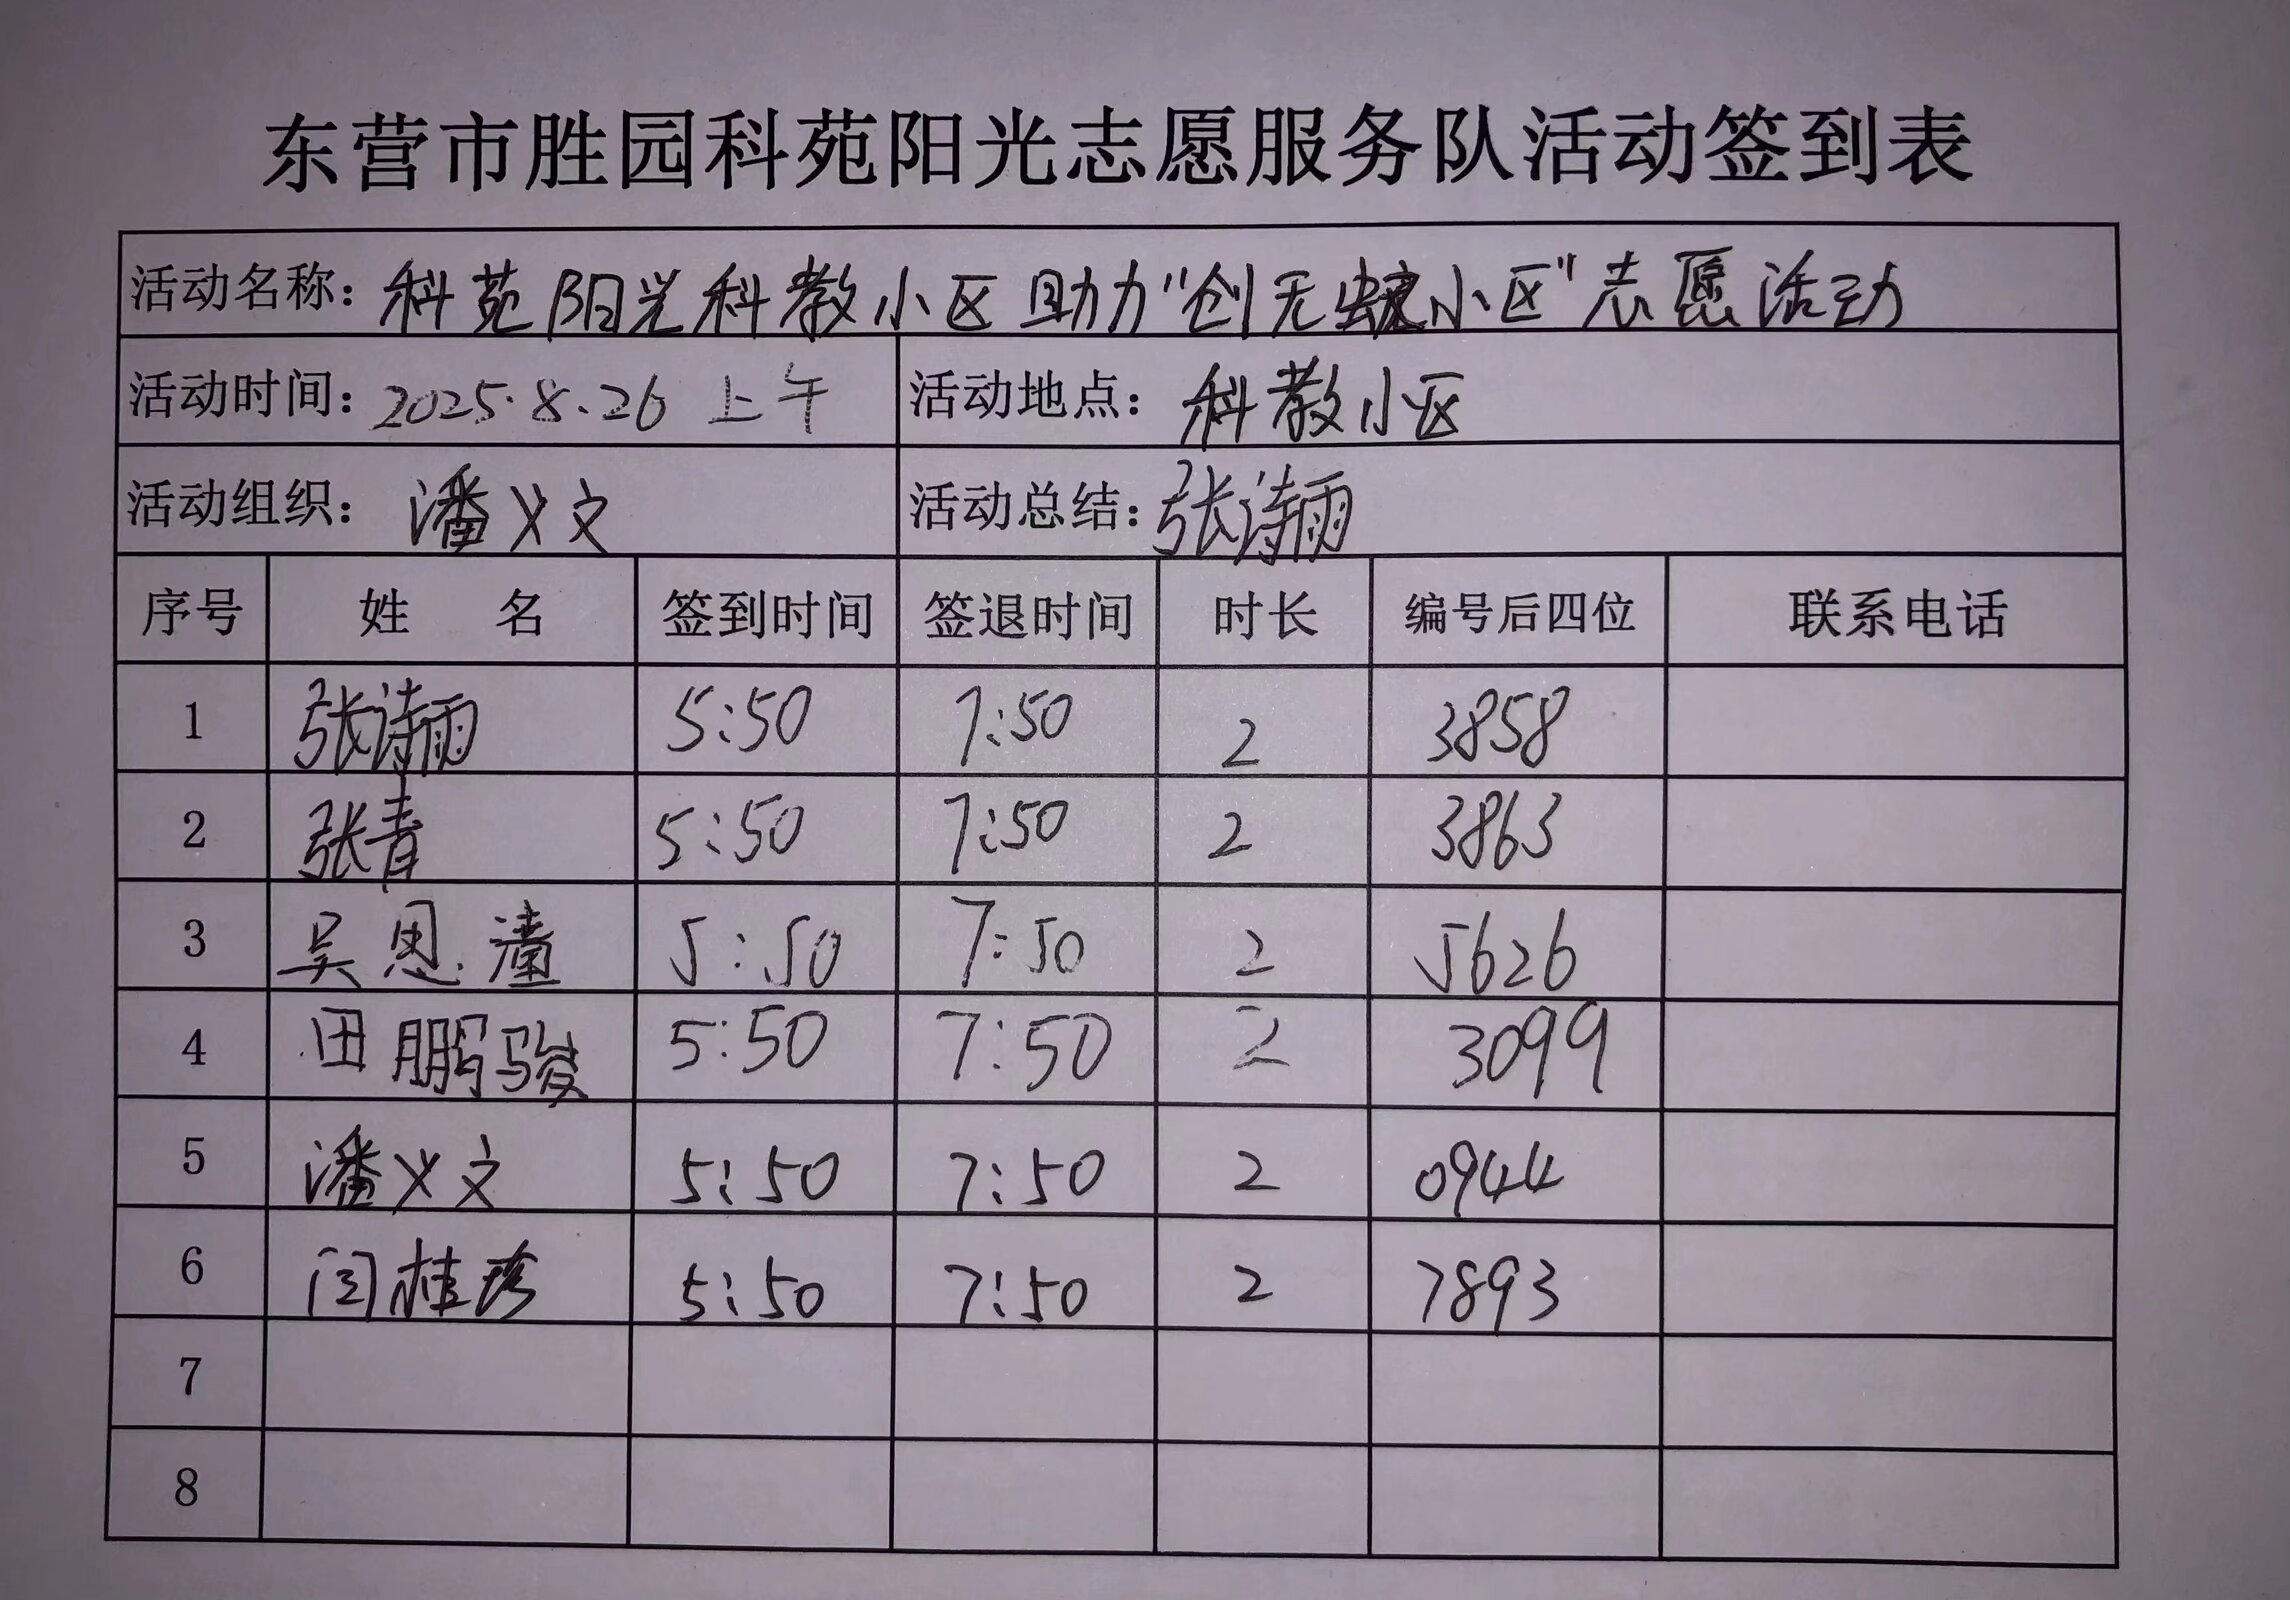 东营市胜园科苑阳光志愿服务队活动签到表
活动名称：科苑阳光科教小区助力“创无蚊小区”志愿活动
活动时间：2025.8.26 上午 活动地点：科教小区
活动组织：潘义文 活动总结：张诗雨
序号 姓 名 签到时间 签退时间 时长 编号后四位 联系电话
1 张诗雨 5:50 7:50 2 3858
2 张青 5:50 7:50 2 3863
3 吴恩 5:50 7:50 2 5626
4 田鹏骏 5:50 7:50 2 3099
5 潘义文 5:50 7:50 2 0944
6 闫桂珍 5:50 7:50 2 7893
7
8